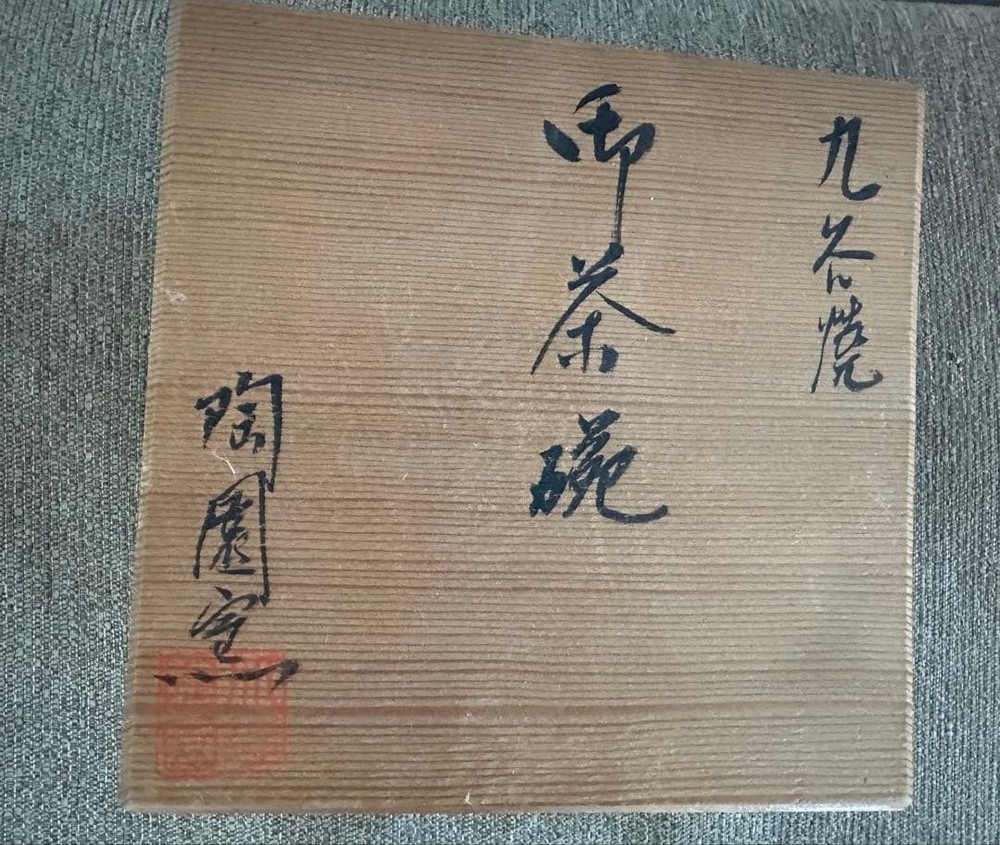 九谷焼
御茶碗
陶園窯